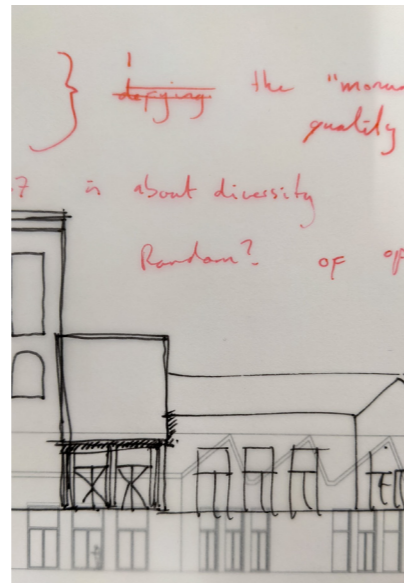 defying the "monu
quality
7 is about diversity
Random? of op